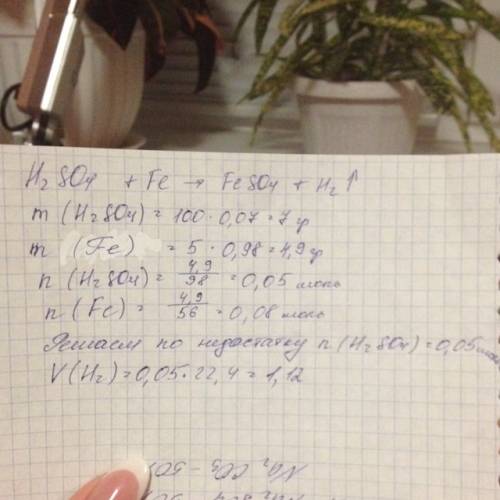 H₂SO₄ + Fe → FeSO₄ + H₂↑
m (H₂SO₄) = 100 · 0,07 = 7 гр
m (Fe) = 5 · 0,98 = 4,9 гр
n (H₂SO₄) = 4,9/98 = 0,05 моль
n (Fe) = 4,9/56 = 0,08 моль
Решаем по недостатку n (H₂SO₄) = 0,05 моль
V(H₂) = 0,05 · 22,4 = 1,12